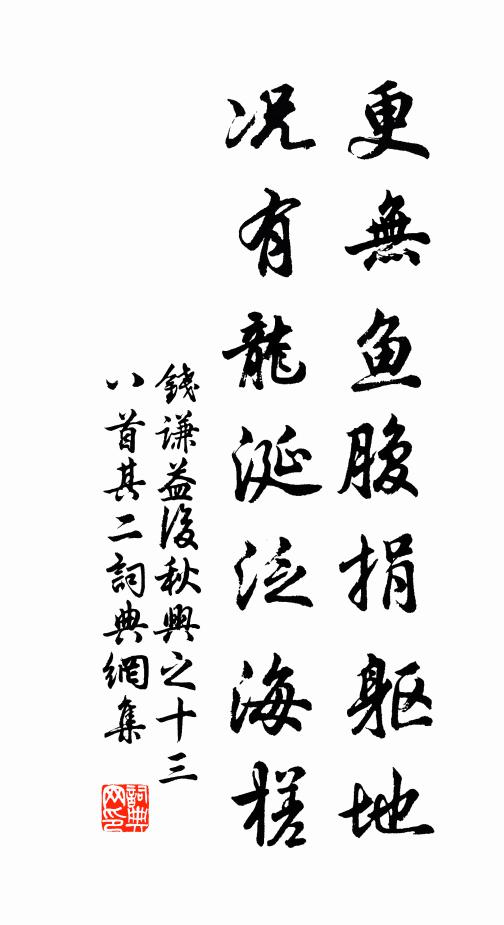 更無鱼腹捐躯地
况有龍涎泛海槎
錢謙益後秋興之十三
八首其二詞典網集
詞典网印